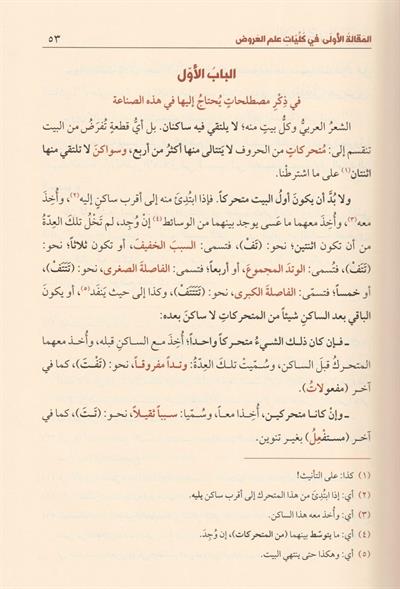 المَقالة الأولى في كُلِّيّات علم العَروض ٥٣
الباب الأوّل
في ذِكْرِ مصطلحاتٍ يُحتاجُ إليها في هذه الصناعة
الشعرُ العربيُّ وكلُّ بيتٍ منه؛ لا يلتقي فيه ساكنان. بل أيُّ قطعةٍ تُفرَضُ من البيت
تنقسم إلى: مُتحركاتٍ من الحروف لا يَتتالى منها أكثرُ من أربع، وسواكنَ لا تلتقي منها
اثنتان(١) على ما اشترطْنا.
ولا بُدَّ أن يكونَ أولُ البيت متحركاً. فإذا ابتُدِئَ منه إلى أقرب ساكنٍ إليه(٢)، وأُخِذَ
معه(٣)، وأُخِذَ معهما ما عَسى يوجد بينهما من الوسائط(٤) إنْ وُجِد، لم تَخْلُ تلك العِدّةُ
من أن تكون اثنتين؛ نحو: (تَفْ)، فتسمى: السببَ الخفيفَ، أو تكون ثلاثاً؛ نحو:
(تَتَفْ)، فتُسمى: الوتدَ المجموعَ، أو أربعاً؛ فتسمى: الفاصلةَ الصغرى، نحو: (تَتَتَفْ)،
أو خمساً؛ فتسمّى: الفاصلةَ الكبرى، نحو: (تَتَتَتَفْ)، وكذا إلى حيث يَنفَد(٥)، أو يكون
الباقي بعد الساكنِ شيئاً من المتحركاتِ لا ساكنَ بعده:
ـ فإن كان ذلك الشيءُ متحركاً واحداً؛ أُخِذَ مع الساكنِ قبله، وأُخذ معهما
المتحركُ قبل الساكن، وسُمّيتْ تلك العِدّةُ: وتداً مفروقاً، نحو: (تَفْتَ)، كما في
آخر (مفعولاتُ).
ـ وإنْ كانا متحركين، أُخِذا معاً، وسُمّيا: سبباً ثقيلاً، نحو: (تَتَ)، كما في
آخر (مستفْعِلُ) بغير تنوين.
(١) كذا: على التأنيث!
(٢) أي: إذا ابتُدِئ من هذا المتحرك إلى أقرب ساكن يليه.
(٣) أي: وأُخذ معه هذا الساكن.
(٤) أي: ما يتوسّط بينهما (من المتحركات)، إن وُجِدَ.
(٥) أي: وهكذا حتى ينتهي البيت.